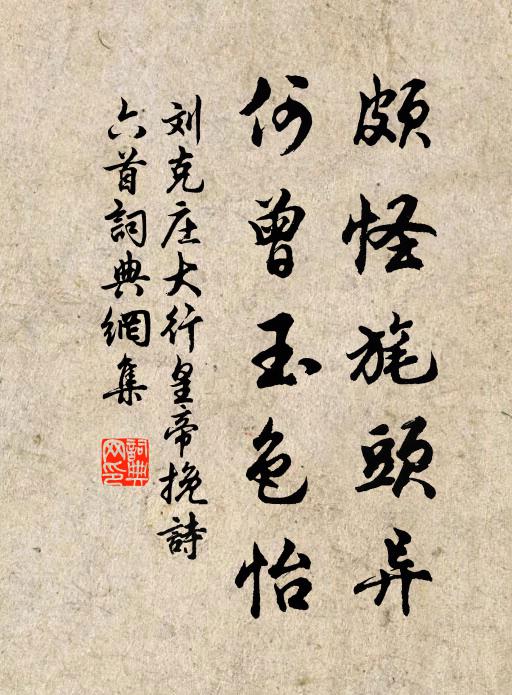 頗怪旄頭异
何曾玉色怡
刘克庄大行皇帝挽詩
六首詞典網集
詞典网印